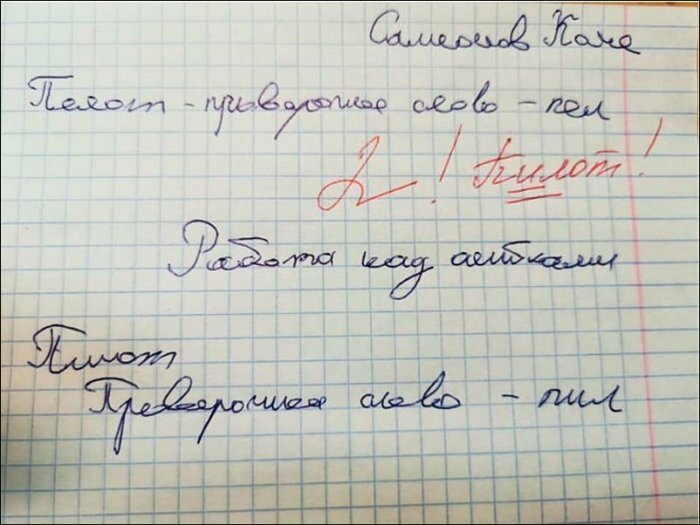 Самсонов Коля
Пелот - праверочное слово - пел
2! Пилот!
Работа над ашибками
Пилот
Праверочное слово - пил